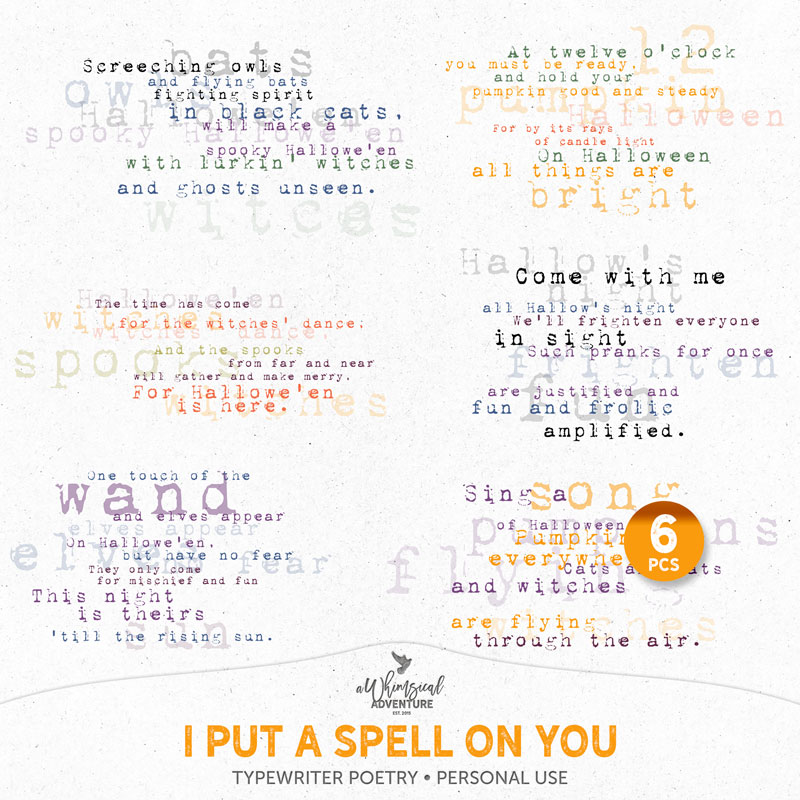 bats
Screeching owls
and flying bats
owls
fighting spirit
in black cats,
Hallowe'en
will make a
spooky Hallowe'en
spooky Hallowe'en
with lurkin' witches
and ghosts unseen.
witces
12
At twelve o'clock
you must be ready,
and hold your
pumpkin good and steady
pumpkin
Halloween
For by its rays
of candle light
On Halloween
all things are
bright
Hallowe'en
The time has come
witches
for the witches' dance;
witches dance
And the spooks
spooks
from far and near
will gather and make merry,
For Hallowe'en
is here.
witches
Hallow's
night
Come with me
all Hallow's night
We'll frighten everyone
in sight
Such pranks for once
frighten
are justified and
fun
fun and frolic
amplified.
One touch of the
wand
and elves appear
elves appear
On Hallowe'en,
but have no fear
elves
fear
They only come
for mischief and fun
This night
is theirs
sun
'till the rising sun.
song
Sing a
of Halloween
Pumpkin
everywhe
Cats a
ts
flying
and witches
are flying
witches
through the air.
6
PCS
a Whimsical
ADVENTURE
EST. 2015
I PUT A SPELL ON YOU
TYPEWRITER POETRY • PERSONAL USE